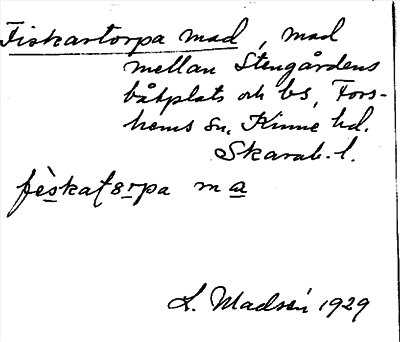 Fiskartorpa mad, mad
mellan Stengårdens
båtplats och bs, Fors-
hems sn, Kinne hd.
Skarab. l.
fèskatorpa ma
L. Madsén 1929